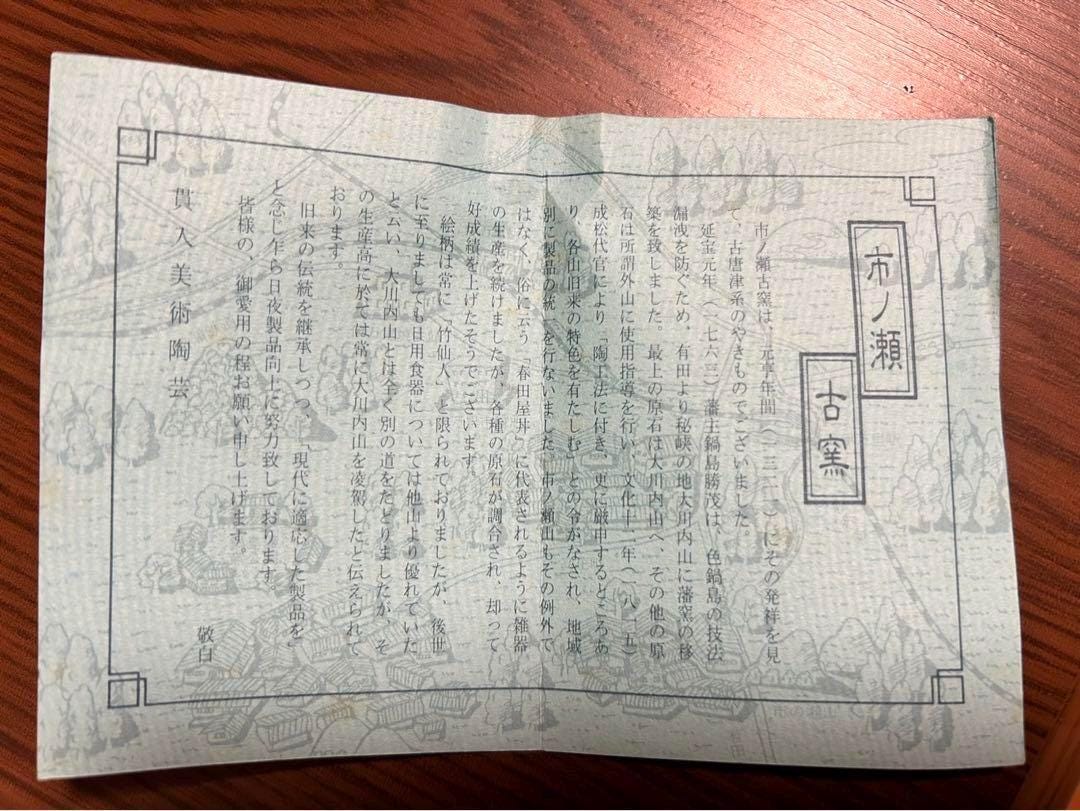 市ノ瀬
古窯
市ノ瀬古窯は、元亨年間(一三二一)にその発祥を見
て、古唐津系のやきものでございました。
延宝元年(一七六三)藩主鍋島勝茂は、色鍋島の技法
漏洩を防ぐため、有田より秘峡の地大川内山に藩窯の移
築を致しました。最上の原石は大川内山へ、その他の原
石は所謂外山に使用指導を行い、文化十一年(一八一五)
成松代官により「陶工法に付き、更に厳申するところあ
り、各山旧来の特色を有たしむ」との令がなされ、地域
別に製品の統一を行ないました。市ノ瀬山もその例外で
はなく、俗に云う「春田屋丼」に代表されるように雑器
の生産を続けましたが、各種の原石が調合され、却って
好成績を上げたそうでございます。
絵柄は常に「竹仙人」と限られておりましたが、後世
に至りましても日用食器については他山より優れていた
と云い、大川内山とは全く別の道をたどりましたが、そ
の生産高に於ては常に大川内山を凌駕したと伝えられて
おります。
旧来の伝統を継承しつつ、「現代に適応した製品を」
と念じ乍ら日夜製品向上に努力致しております。
皆様の、御愛用の程お願い申し上げます。
敬白
貫入美術陶芸